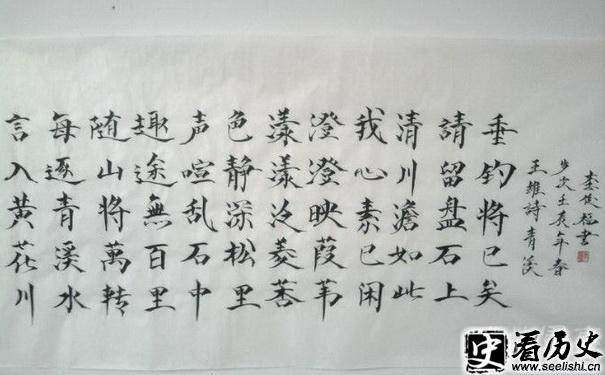 言入黄花川
每逐青溪水
随山将萬转
趣途無百里
声喧乱石中
色静深松里
漾漾泛菱荇
澄澄映葭苇
我心素已闲
清川澹如此
請留盘石上
垂钓将已矣
王維詩青溪
岁次壬辰年春
李俊书
看历史
www.seelishi.cn